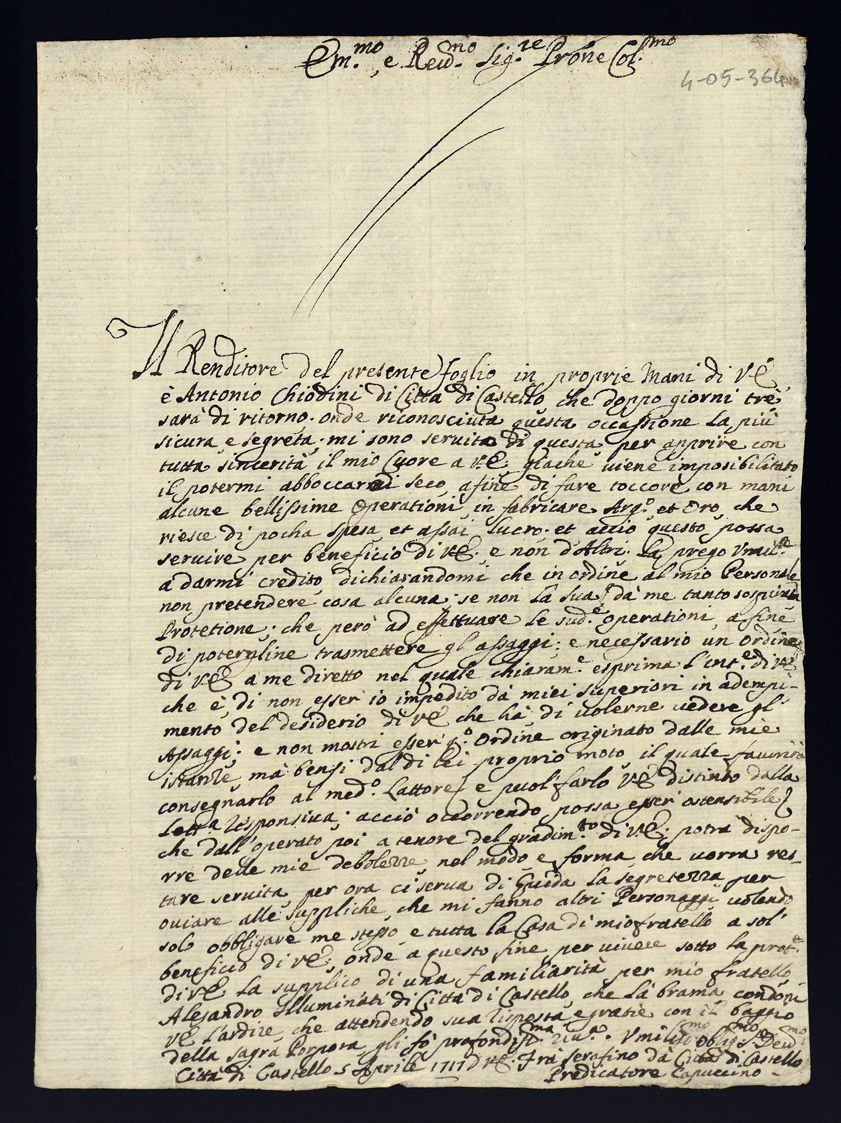 Em.mo, e Reud.mo Sig.re Prône Col.mo
4-05-364
Il Renditore del presente foglio in proprie Mani di VE
è Antonio Chiodini di Città di Castello che doppo giorni trè
sarà di ritorno. onde riconosciuta questa occassione la più
sicura e segreta. mi sono seruita di questa per apprire con
tutta sincerità il mio Cuore a VE; giache uiene imposibilitato
il potermi abboccarmi seco, afine di fare toccore con mani
alcune bellissime operationi, in fabricare Arg.o et Oro, che
riesce di pocha spesa et assai lucro. et acciò questo possa
seruire per beneficio di VE. e non d'Altri. La prego
a darmi credito dichiarandomi che in ordine al mio Personale
non pretendere cosa alcuna; se non la Sua, da me tanto sospirata
Protetione; che però ad effettuare le sud.e operationi, a fine
di poternline trasmettere gl'assaggi; e necessario un ordine
di VE a me diretto nel quale chiaram.e esprima l'int.e di VE
che è, di non esser io impedito da miei superiori in adempi-
mento del desiderio di VE che hà, di uolerne uedere gl'
Assaggi; e non mostri esser q.o Ordine originato dalle mie
istanze, mà bensi dal di lei proprio moto, il quale fauorirà
consegnarlo al med.o Lattore, e puol farlo VE distinto dalla
lett.a responsiua; acciò occorrendo possa esser ostensibile
che dall'operato poi a tenore del gradim.to di VE. potrà dispo-
rre delle mie debolezze nel modo e forma, che uorrà res-
tare seruita per ora ci serua di Guida la segretezza per
ouiare alle suppliche, che mi fanno altri Personaggi uolendo
solo obbligare me stesso e tutta la Casa di mio fratello a sol'
beneficio di VE; onde a questo fine per viuere sotto la prot.e
di VE. la supplico di una familiarità per mio fratello
Alesandro Illuminati di Città di Castello, che la brama condoni
VE l'ardire, che attendendo sua risposta e gratie con il baggio
della sagra Porpora gli fò profondis.ma riu.a. Vmiliss.mo Obl.mo S. Deu.mo
Città di Castello 5 Aprile 1717 D VE. Fra serafino da Città di Castello
Predicatore Capuccino -